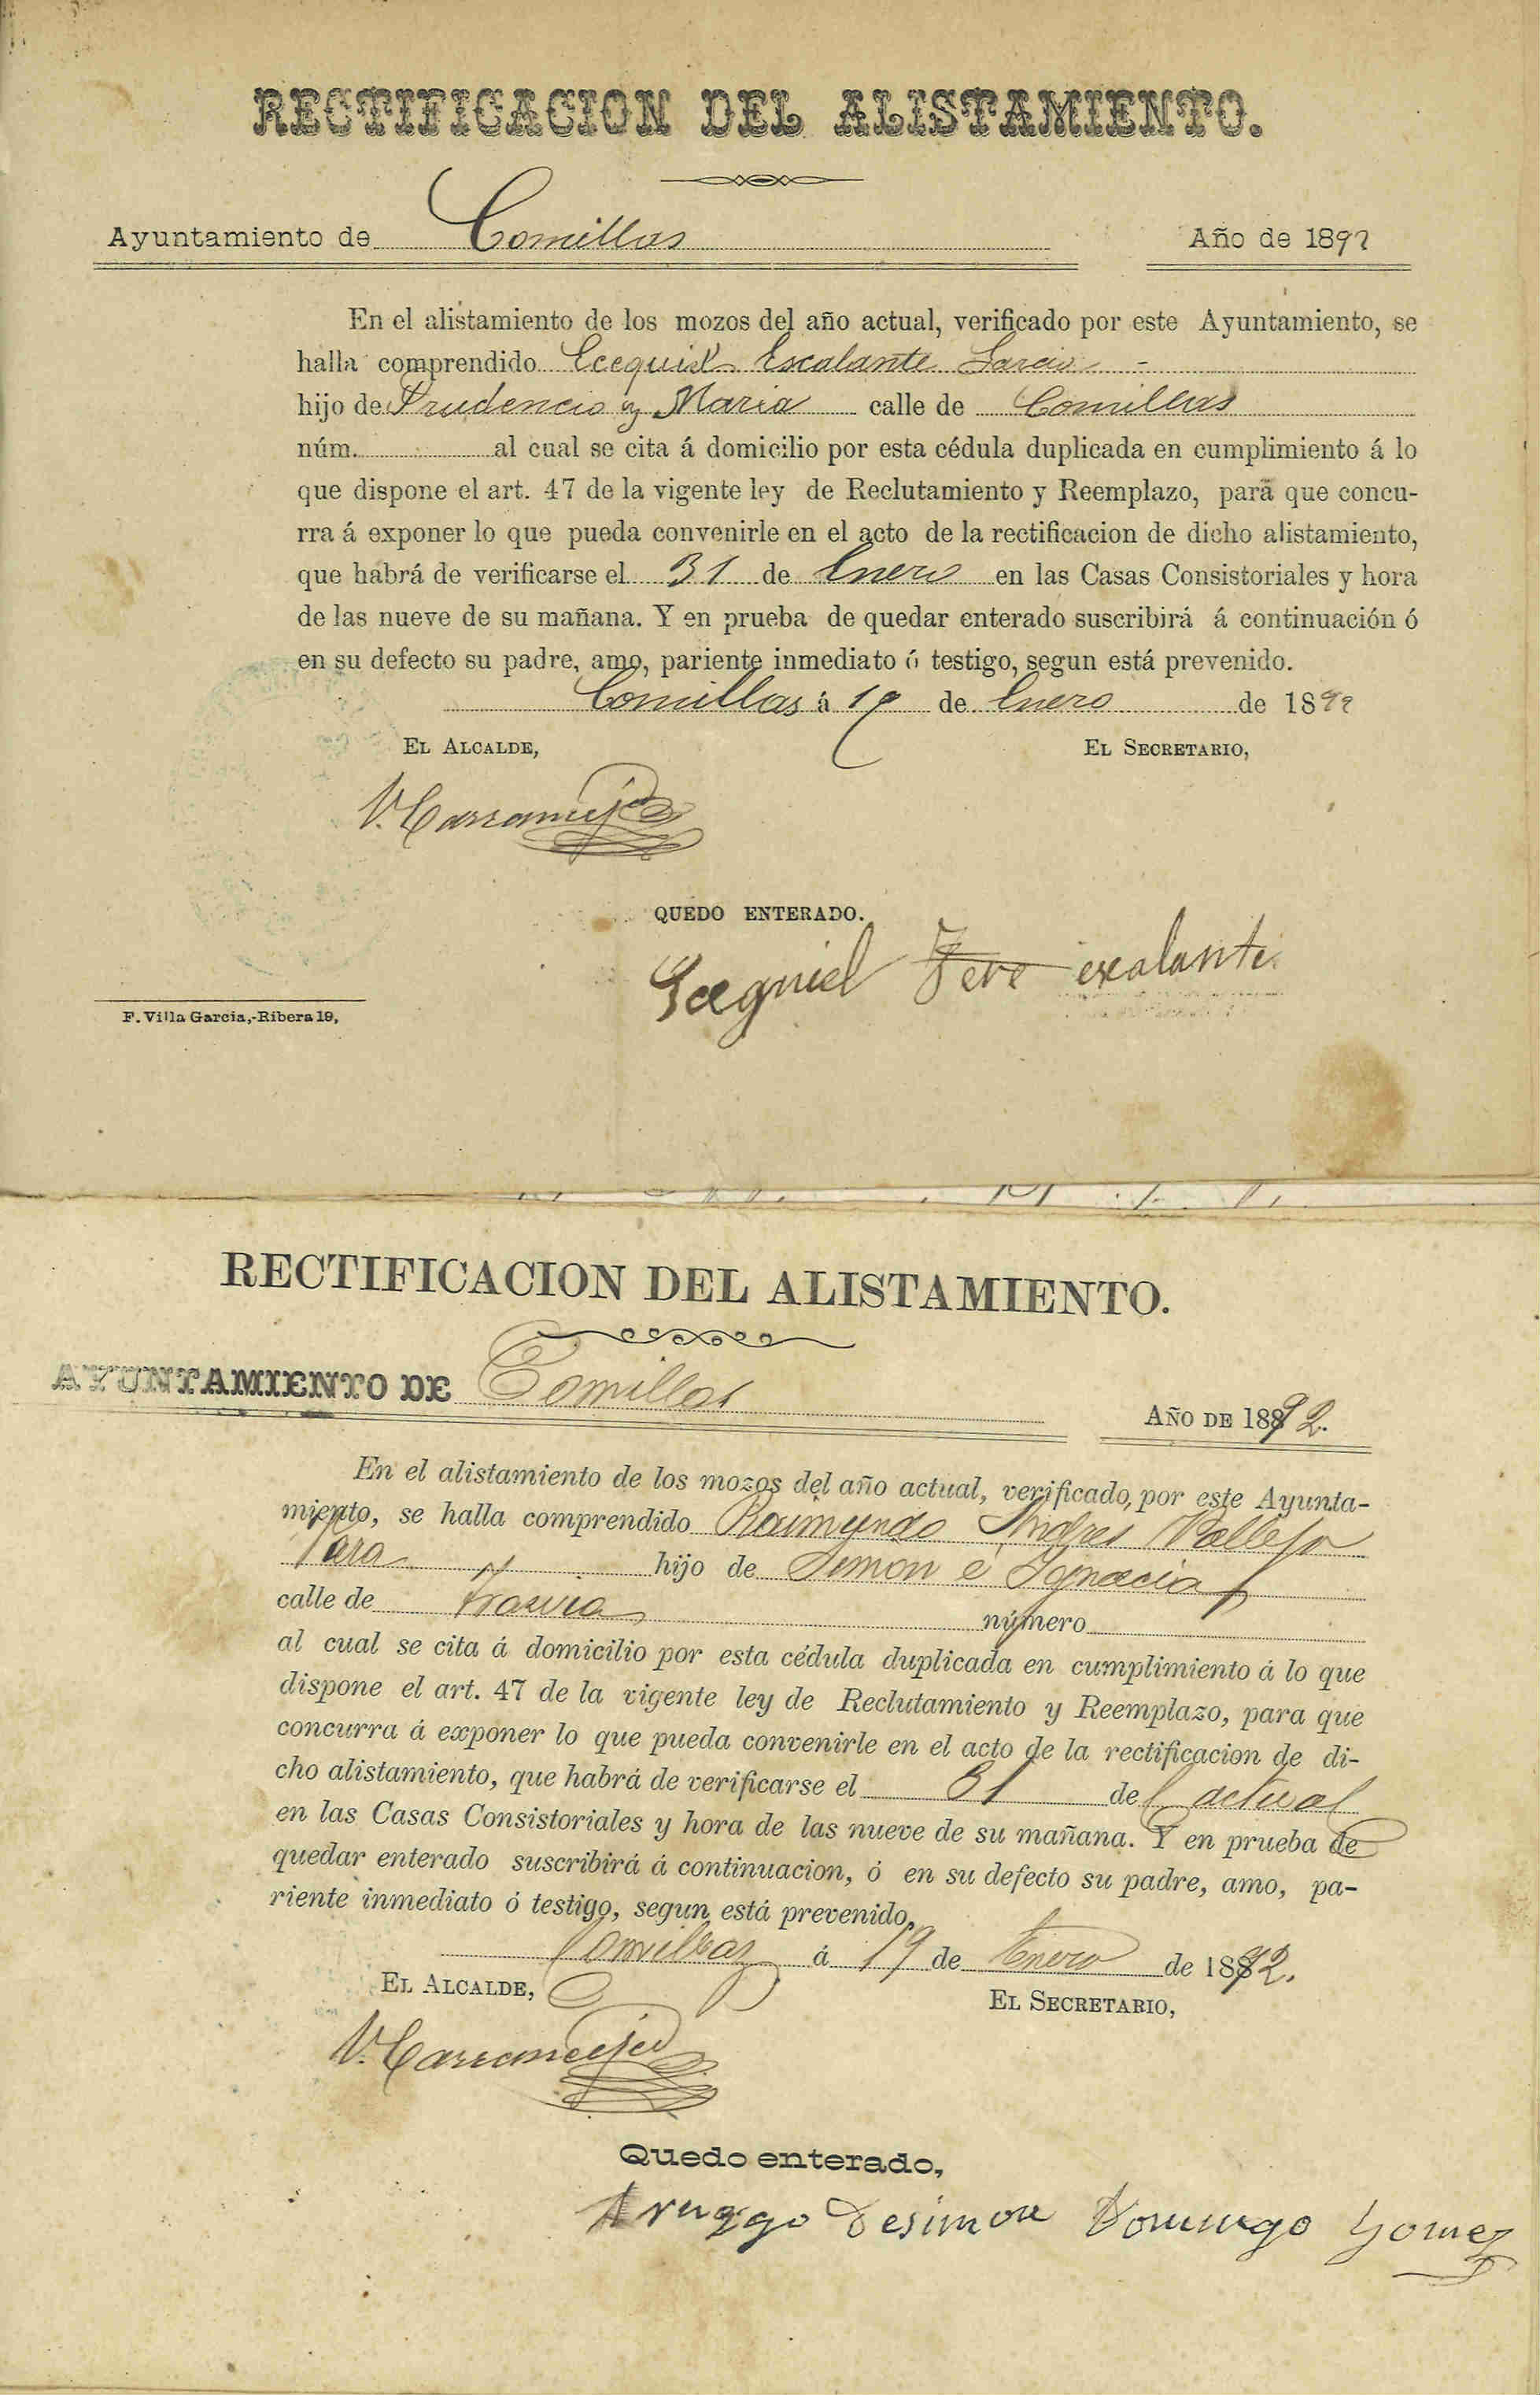 RECTIFICACION DEL ALISTAMIENTO.
Ayuntamiento de Comillas Año de 1892
En el alistamiento de los mozos del año actual, verificado por este Ayuntamiento, se
halla comprendido Ecequiel Escalante Garcia
hijo de Prudencio y Maria calle de Comillas
núm. al cual se cita á domicilio por esta cédula duplicada en cumplimiento á lo
que dispone el art. 47 de la vigente ley de Reclutamiento y Reemplazo, para que concu-
rra á exponer lo que pueda convenirle en el acto de la rectificacion de dicho alistamiento,
que habrá de verificarse el 31 de Enero en las Casas Consistoriales y hora
de las nueve de su mañana. Y en prueba de quedar enterado suscribirá á continuación ó
en su defecto su padre, amo, pariente inmediato ó testigo, segun está prevenido.
Comillas á 19 de Enero de 1892
EL ALCALDE, EL SECRETARIO,
V. Carranceja
QUEDO ENTERADO.
exalante
F. Villa Garcia,-Ribera 19,
RECTIFICACION DEL ALISTAMIENTO.
AYUNTAMIENTO DE Comillas AÑO DE 1892.
En el alistamiento de los mozos del año actual, verificado, por este Ayunta-
miento, se halla comprendido Raimundo Andres Vallejo
Para hijo de Simon é Ignacia
calle de Trasvia número
al cual se cita á domicilio por esta cédula duplicada en cumplimiento á lo que
dispone el art. 47 de la vigente ley de Reclutamiento y Reemplazo, para que
concurra á exponer lo que pueda convenirle en el acto de la rectificacion de di-
cho alistamiento, que habrá de verificarse el 31 del actual
en las Casas Consistoriales y hora de las nueve de su mañana. Y en prueba de
quedar enterado suscribirá á continuacion, ó en su defecto su padre, amo, pa-
riente inmediato ó testigo, segun está prevenido.
Comillas á 19 de Enero de 1892.
EL ALCALDE, EL SECRETARIO,
V. Carranceja
Quedo enterado,
Aruego Desimon Domingo Gomez